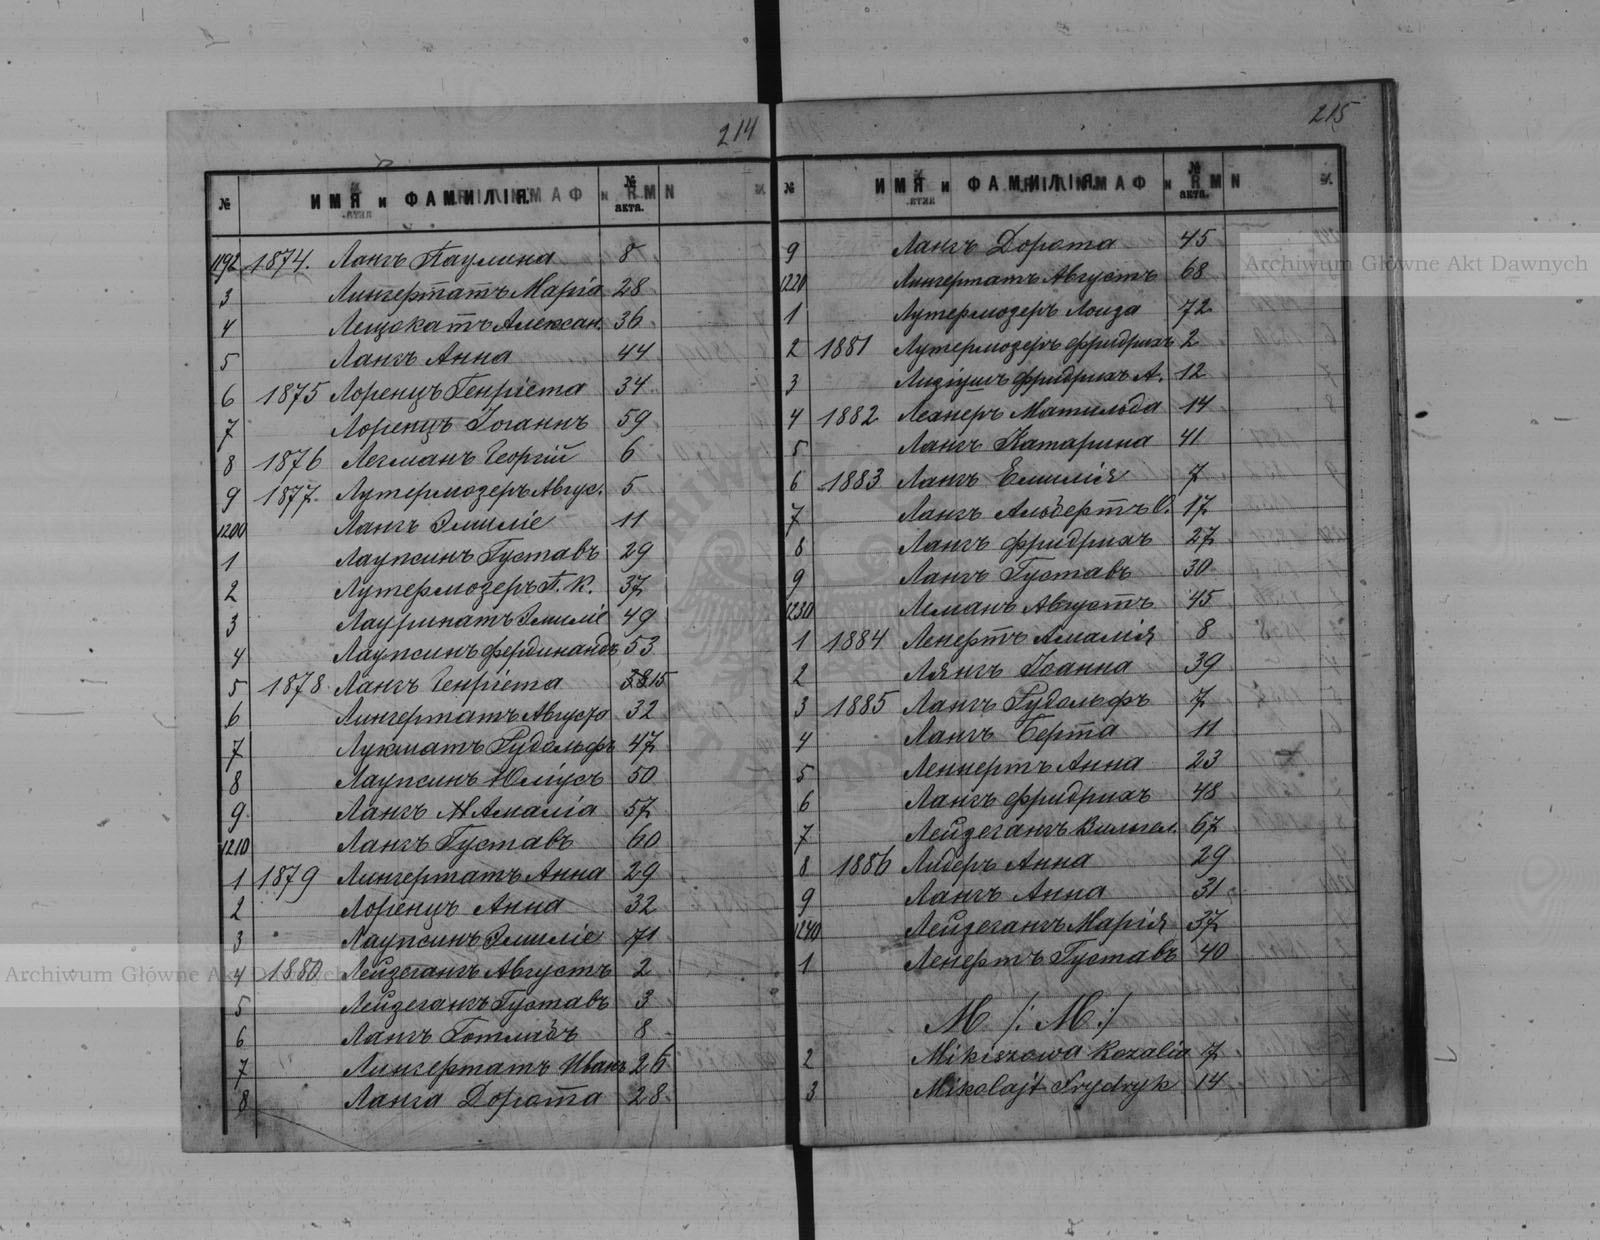 214
№ ИМЯ и ФАМИЛІЯ № акта.
1192 1874. Лангъ Паулина 8
3 Лингертатъ Марія 28
4 Лещокатъ Алексан. 36
5 Лангъ Анна 44
6 1875 Лоренцъ Генріета 34
7 Лоренцъ Іоганнъ 59
8 1876 Легманъ Георгій 6
9 1877. Лутермозеръ Авгус. 5
1200 Лангъ Эмиліе 11
1 Лаупсинъ Густавъ 29
2 Лутермозеръ П. К. 37
3 Лауринатъ Эмиліе 49
4 Лаупсинъ Фердинандъ 53
5 1878 Лангъ Генріета 15
6 Лингертатъ Августа 32
7 Лукшатъ Рудольфъ 47
8 Лаупсинъ Юліусъ 50
9 Лангъ Амалія 57
1210 Лангъ Густавъ 60
1 1879 Лингертатъ Анна 29
2 Лоренцъ Анна 32
3 Лаупсинъ Эмиліе 71
4 1880 Лейзегангъ Августъ 2
5 Лейзегангъ Густавъ 3
6 Лангъ Готлибъ 8
7 Лингертатъ Иванъ 26
8 Ланга Дорота 28
215
№ ИМЯ и ФАМИЛІЯ № акта.
9 Лангъ Дорота 45
1220 Лингертатъ Августъ 68
1 Лутермозеръ Лоиза 72
2 1881 Лутермозеръ Фридрихъ 2
3 Лизіушъ Фридрихъ А. 12
4 1882 Леанеръ Матильда 14
5 Лангъ Катарина 41
6 1883 Лангъ Емилія 7
7 Лангъ Альбертъ 17
8 Лангъ Фридрихъ 27
9 Лангъ Густавъ 30
1230 Леманъ Августъ 45
1 1884 Ленертъ Амалія 8
2 Лянгъ Іоанна 39
3 1885 Лангъ Рудольфъ 7
4 Лангъ Берта 11
5 Леннертъ Анна 23
6 Лангъ Фридрихъ 48
7 Лейзегангъ Вильгел. 67
8 1886 Лидеръ Анна 29
9 Лангъ Анна 31
1240 Лейзегангъ Марія 37
1 Ленертъ Густавъ 40
М /: M :/
2 Mikiszowa Rozalia 7
3 Mikolajt Frydryk 14
Archiwum Główne Akt Dawnych
Archiwum Główne Akt Dawnych